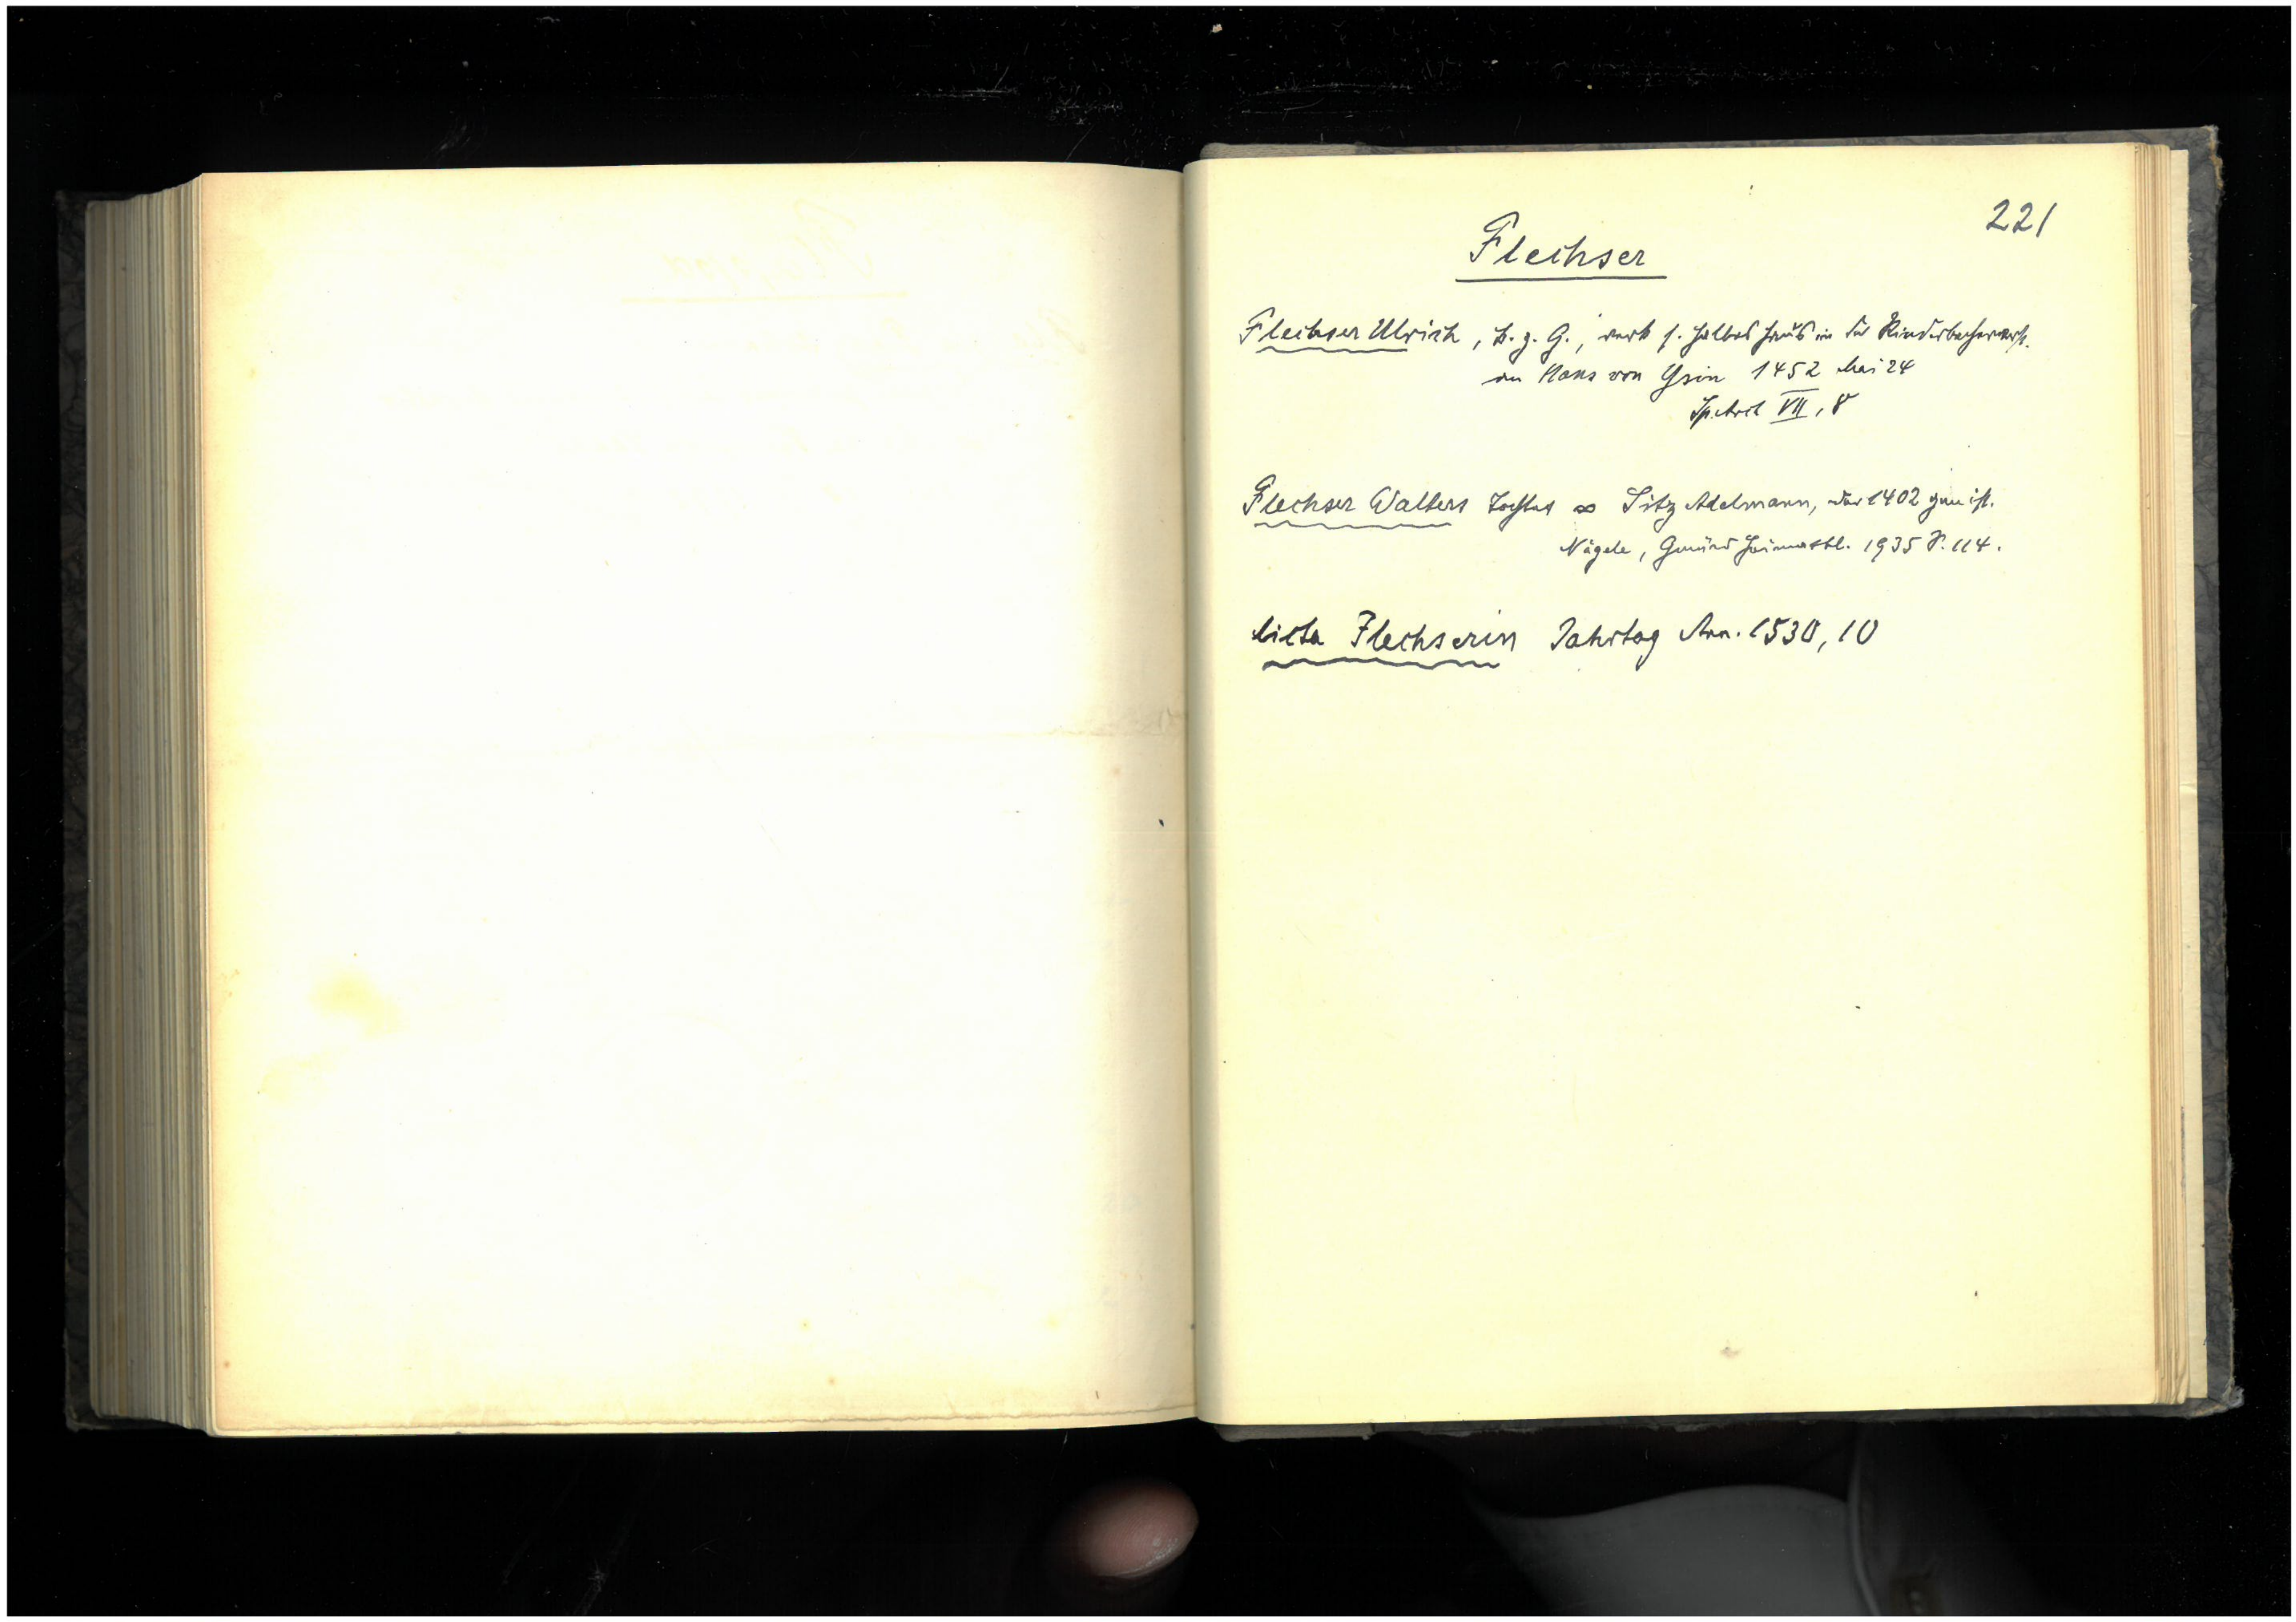 221
Flechser
Flechser Ulrich, B. z. G., verk s. halbes Haus in der Rinderbachervorst.
an Hans von Ysin 1452 Mai 24
Sp. Arch VII, 8
Flechser Walters Tochter ∞ Sitz Adelmann, der 1402 gen ist.
Nägele, Gmünd Heimatbl. 1935 S. 114.
Flechserin Jahrtag Ann. 1530, 10